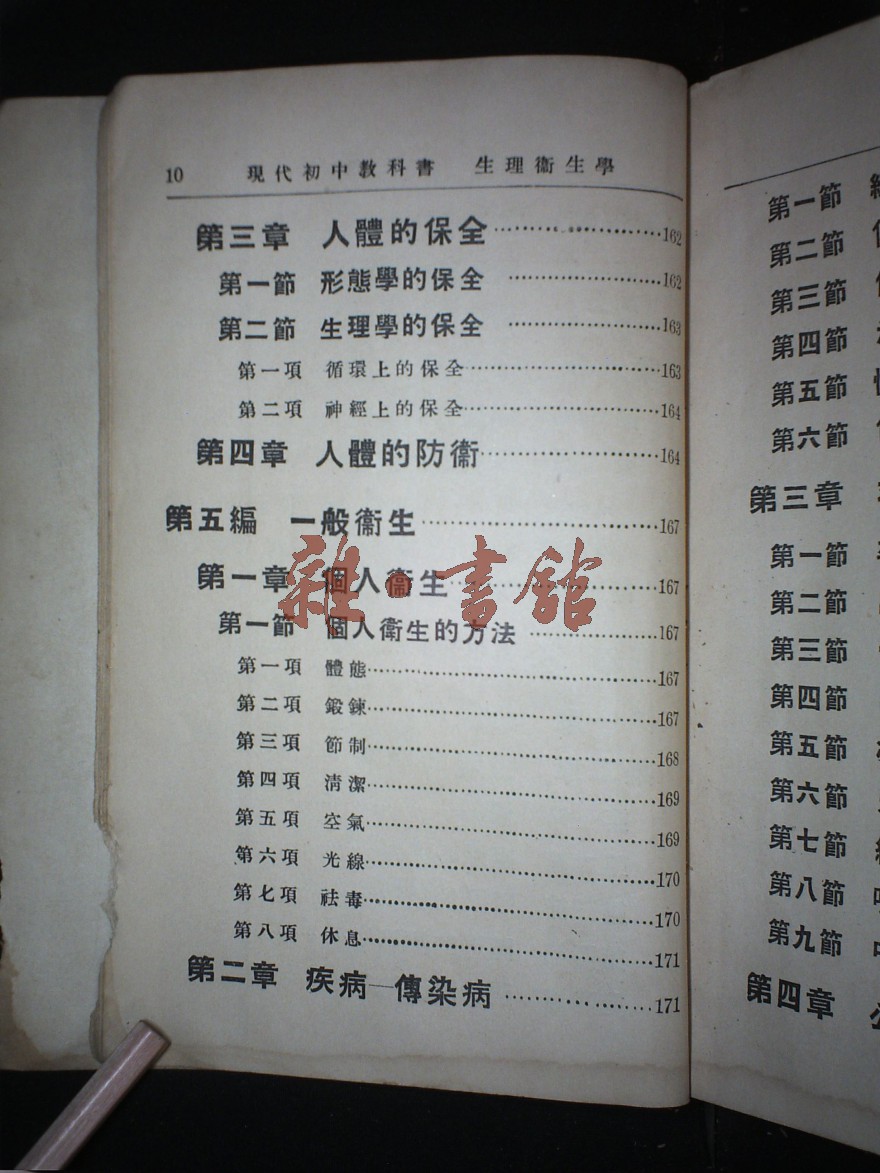 10 現代初中教科書 生理衞生學
第三章 人體的保全………………162
第一節 形態學的保全 ………………162
第二節 生理學的保全 ………………163
第一項 循環上的保全………………163
第二項 神經上的保全………………164
第四章 人體的防衞………………164
第五編 一般衞生………………167
第一章 個人衞生………………167
第一節 個人衞生的方法 ………………167
第一項 體態………………167
第二項 鍛鍊………………167
第三項 節制………………168
第四項 清潔………………169
第五項 空氣………………169
第六項 光線………………170
第七項 祛毒………………170
第八項 休息………………171
第二章 疾病—傳染病………………171
雜·書館
第一節
第二節
第三節
第四節
第五節
第六節
第三章
第一節
第二節
第三節
第四節
第五節
第六節
第七節
第八節
第九節
第四章